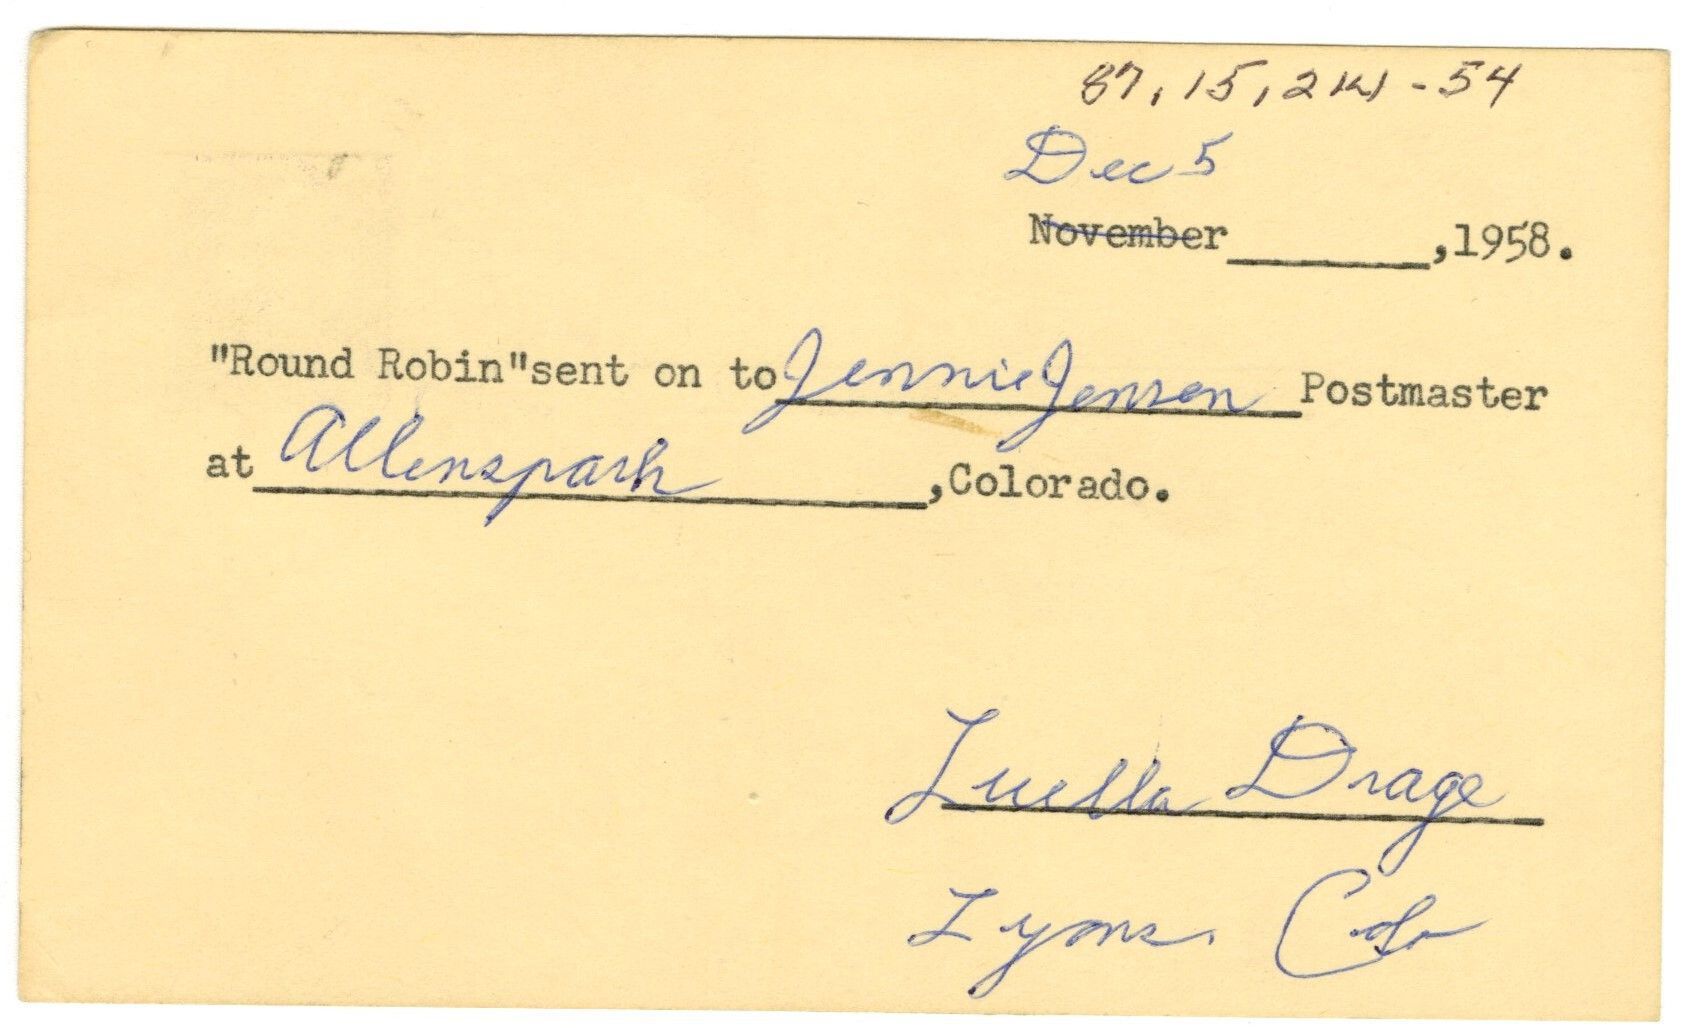 87, 15, 2W - 54
Dec 5
November ________, 1958.
"Round Robin"sent on to Jennie Jensen Postmaster
at Allenspark ,Colorado.
Luella Drage
Lyons. Colo